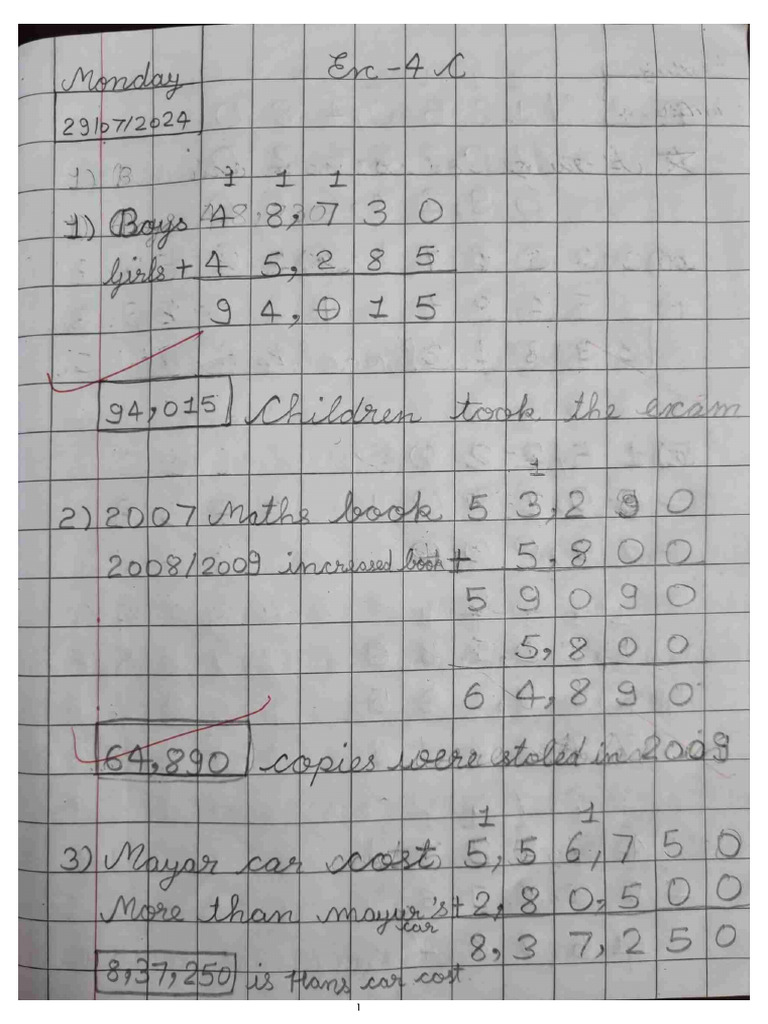 Monday
Exc-4C
29/07/2024
1) B
1 1 1
1) Boys 48,730
Girls + 45,285
94,015
94,015 Children took the exam
1
2) 2007 Maths book 53,290
2008/2009 increased book + 5,800
59090
5,800
64,890
64,890 copies were stoled in 2009
1 1
3) Mayar car cost 5,56,750
More than mayur's + 2,80,500
car
8,37,250
8,37,250 is Hans car cost
1